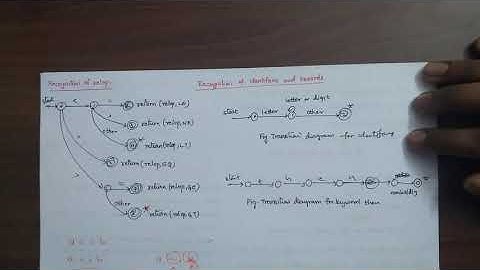 Recognition of relop.
start
<
return (relop, LE)
return (relop, NE)
other
return (relop, LT)
return (relop, EQ)
>
return (relop, GE)
other
return (relop, GT)
Recognition of identifiers and keywords
letter or digit
start
letter
other
Fig. Transition diagram for identifiers
start
t
h
e
n
Fig. Transition diagram for keyword then